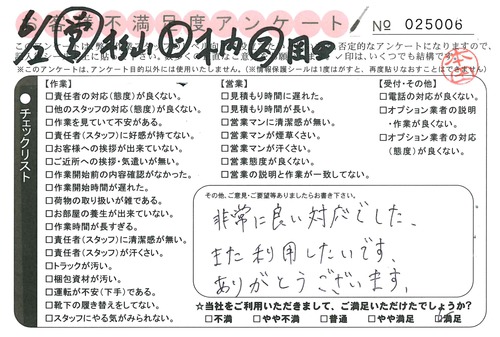 お客様不満足度アンケート
No 025006
※このアンケートは、アンケート目的以外には使用いたしません。(情報保護シールは1度はがすと、再度貼りなおすことはできません)
チェックリスト
【作業】
□責任者の対応(態度)が良くない。
□他のスタッフの対応(態度)が良くない。
□作業を見ていて不安がある。
□責任者(スタッフ)に好感が持てない。
□お客様への挨拶が出来ていない。
□ご近所への挨拶・気遣いが無い。
□作業開始前の内容確認がなかった。
□作業開始時間が遅れた。
□荷物の取り扱いが雑である。
□お部屋の養生が出来ていない。
□作業時間が長すぎる。
□責任者(スタッフ)に清潔感が無い。
□責任者(スタッフ)が汗くさい。
□トラックが汚い。
□梱包資材が汚い。
□運転が不安(下手)である。
□靴下の履き替えをしてない。
□スタッフにやる気がみられない。
【営業】
□見積もり時間に遅れた。
□見積もり時間が長い。
□営業マンに清潔感が無い。
□営業マンが煙草くさい。
□営業マンが汗くさい。
□営業態度が良くない。
□営業の説明と作業が一致してない。
【受付・その他】
□電話の対応が良くない。
□オプション業者の説明
・作業が良くない。
□オプション業者の対応
(態度)が良くない。
その他、ご意見・ご要望等ありましたらお書き下さい。
非常に良い対応でした。
また利用したいです。
ありがとうございます。
★当社をご利用いただきまして、ご満足いただけたでしょうか?
□不満 □やや不満 □普通 □やや満足 ☑満足